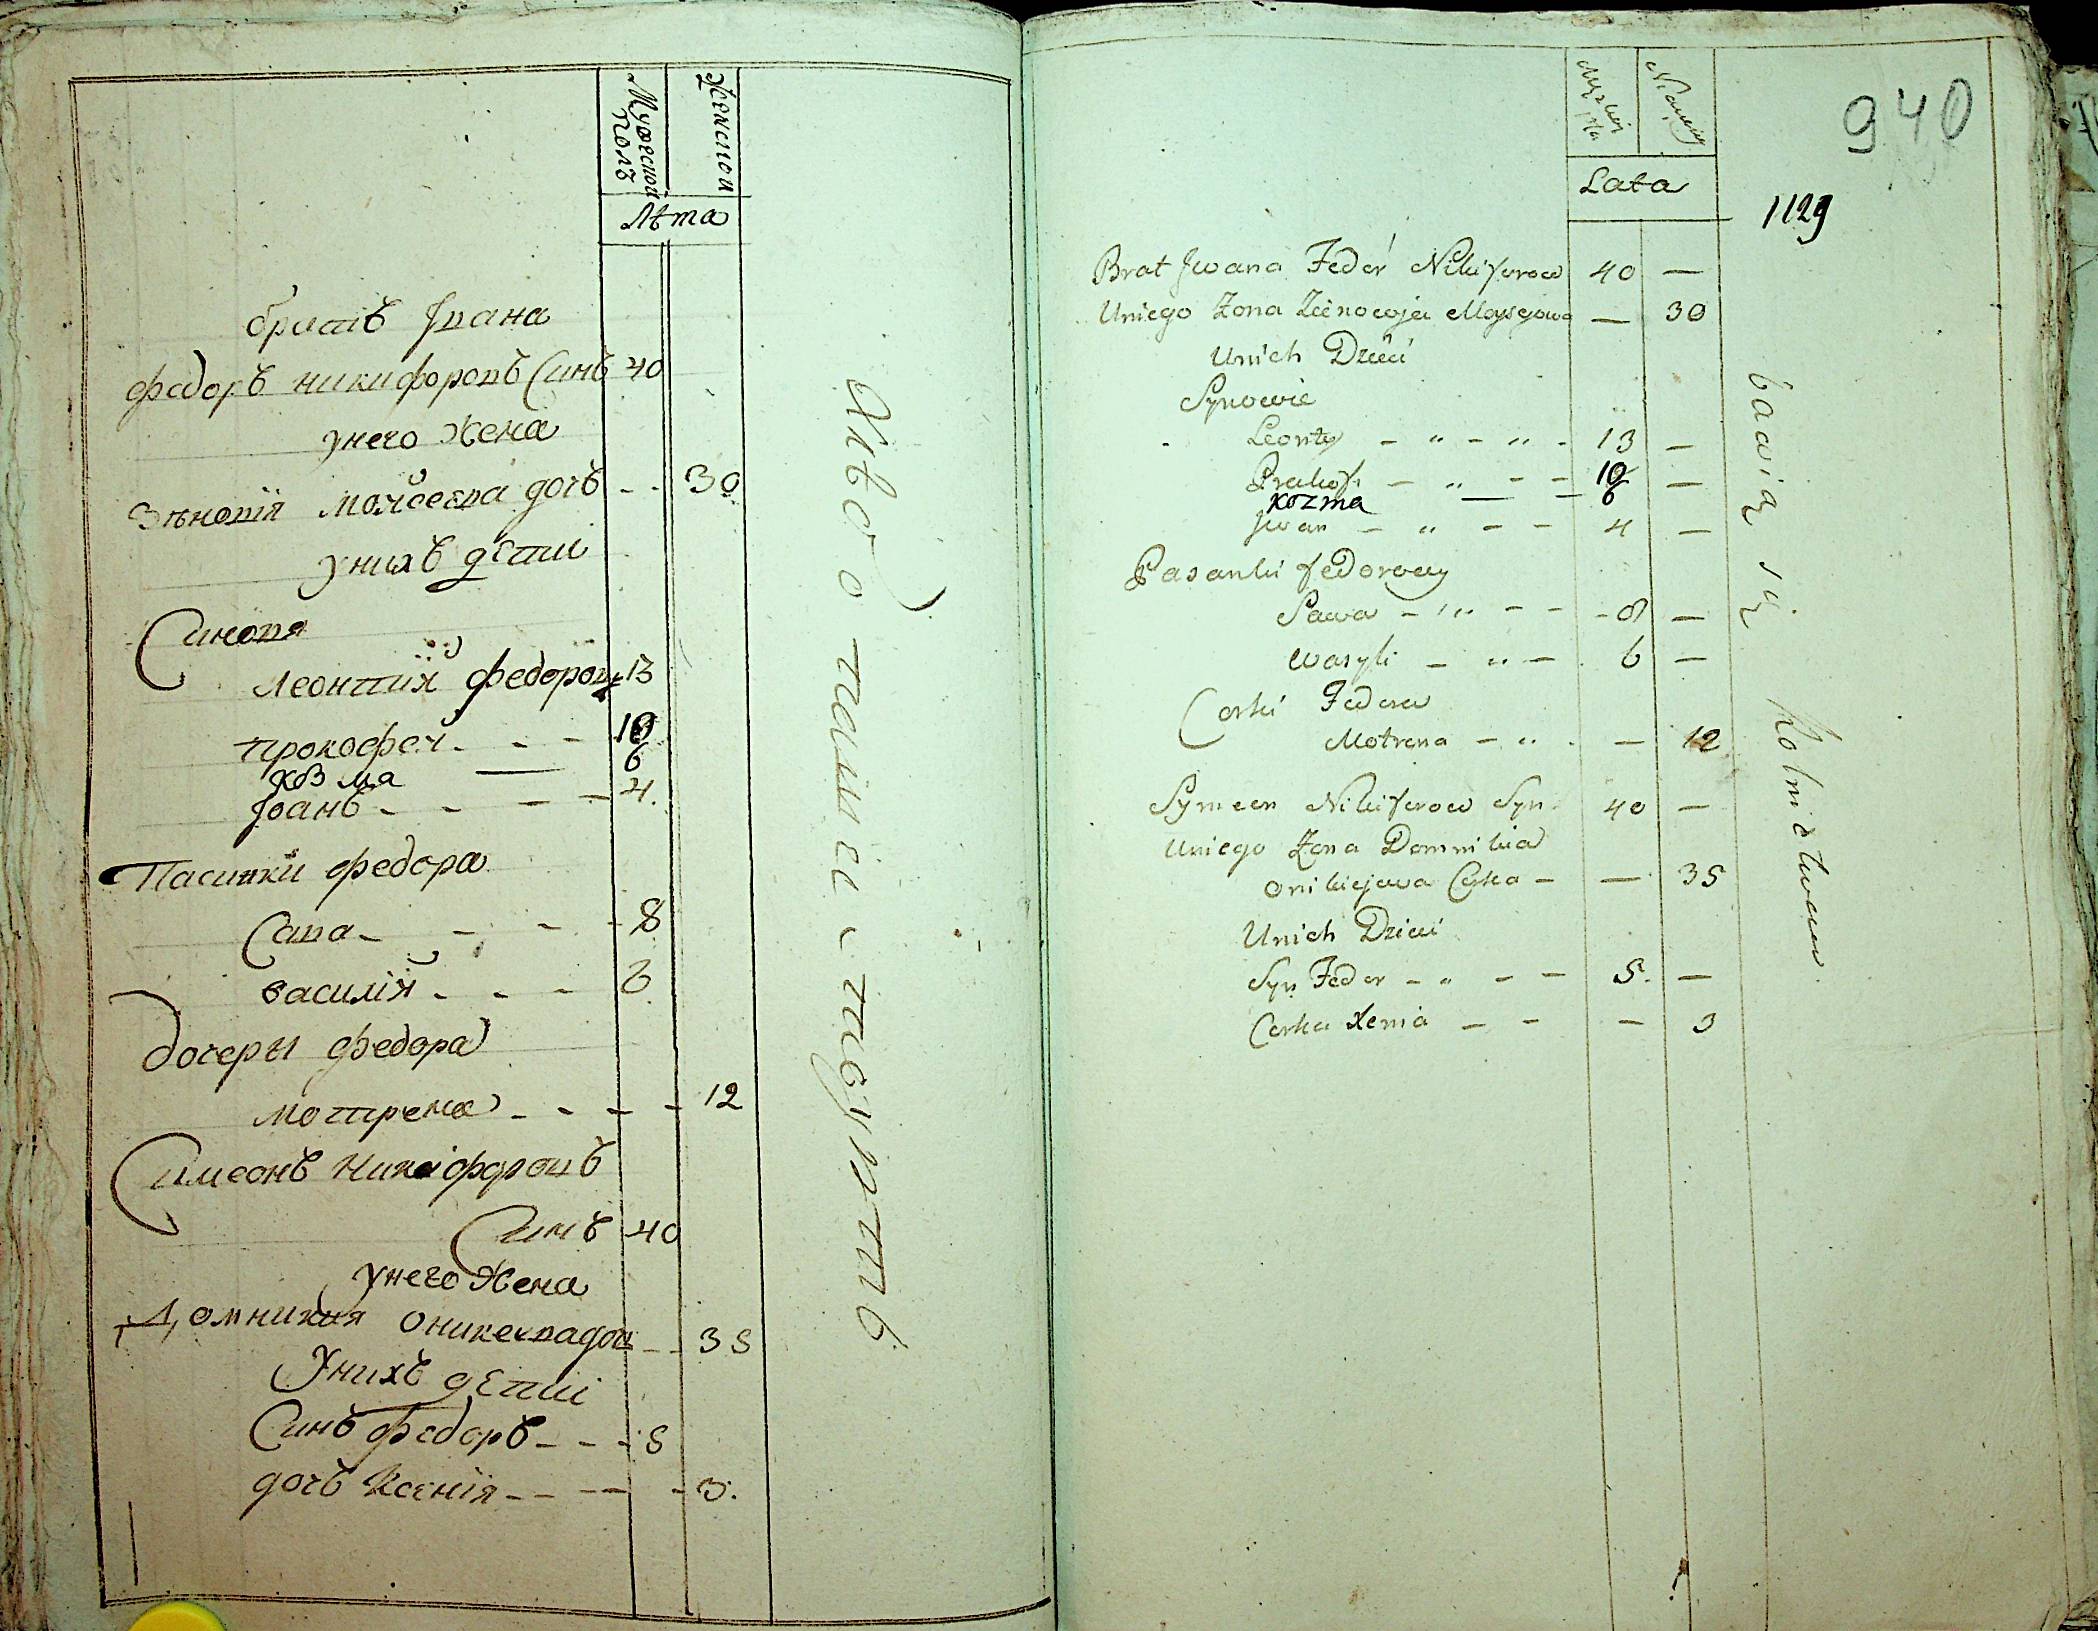 Мужеской полъ
Женской
Лѣта
братъ Jвана
федоръ никифоровъ Синъ 40
унего жена
Зѣновія моисеева дочъ - - 30
унихъ дѣти
Синовя
Леонтий федоров 13
прокофей - - - 10
козма — 6
Jванъ - - - - 4.
Пасинки федора
Сава - - - - 8
василій - - - 6
дочеры федора
мотрена - - - - 12
Симеонъ Никифоровъ
Синъ 40
унего жена
Домникия оникеева доч - - 35
Унихъ дѣти
Синъ федоръ - - - 5
дочъ Ксенія - - - - - 3.
Хлѣбо-пашествуютъ
940
1129
Lata
Brat Jwana Fedor Nikiforow 40 —
Uniego Zona Zienowija Moysejowa — 30
Unich Dzieci
Synowie
Leonty - " - " - 13 —
Prakof. - " - - 10 —
Kozma — - 6
Jwan - " - - 4 —
Pasanki fedorowy
Sawa - " - - - 8 —
Wasyli - " - 6 —
Corki Fedora
Motrena - " . — 12
Symeon Nikiforow Syn 40 —
Uniego Zona Domnikia
Onikiejowa Corka - — 35
Unich Dzieci
Syn Fedor - " - - 5. —
Corka Xenia - - — 3
bawią się Rolnictwem